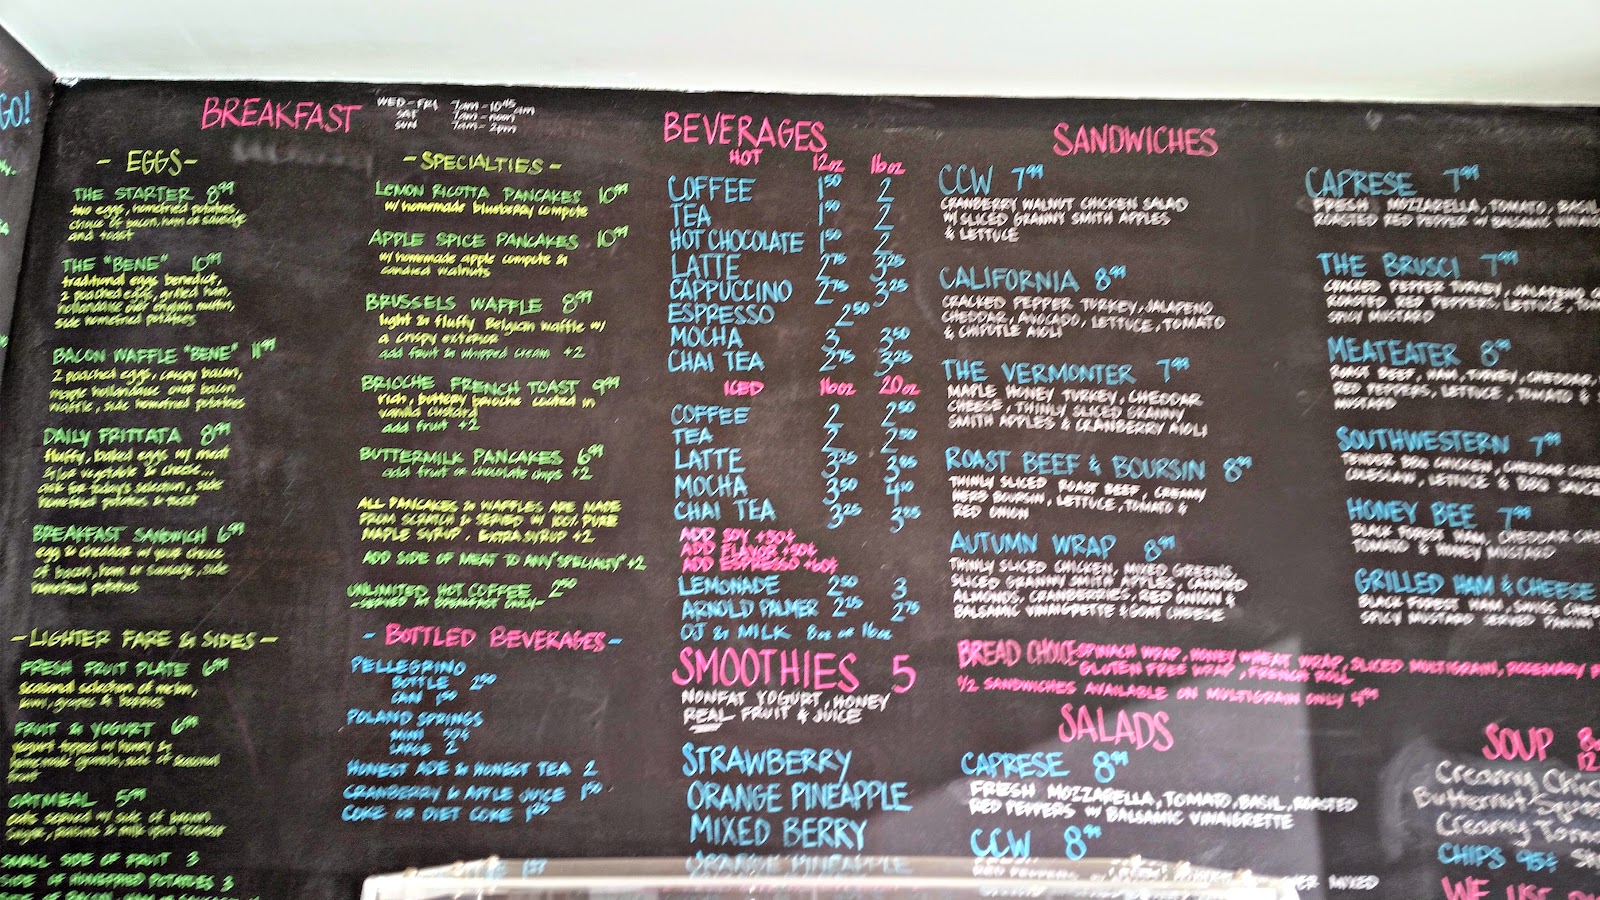 GO!
BREAKFAST
WED-FRI 7am-10:45am
SAT 7am-noon
SUN 7am-2pm
- EGGS -
THE STARTER 8.99
two eggs, homefried potatoes,
choice of bacon, ham or sausage
and toast
THE "BENE" 10.99
traditional eggs benedict,
2 poached eggs, grilled ham,
hollandaise over english muffin,
side homefried potatoes
BACON WAFFLE "BENE" 11.99
2 poached eggs, crispy bacon,
maple hollandaise over bacon
waffle, side homefried potatoes
DAILY FRITTATA 8.99
fluffy, baked eggs w/ meat
&/or vegetable & cheese...
ask for today's selection, side
homefried potatoes & toast
BREAKFAST SANDWICH 6.99
egg & cheddar w/ your choice
of bacon, ham or sausage, side
homefried potatoes
- LIGHTER FARE & SIDES -
FRESH FRUIT PLATE 6.99
seasonal selection of melon,
kiwi, grapes & berries
FRUIT & YOGURT 6.99
yogurt topped w/ honey &
homemade granola, side of seasonal
fruit
OATMEAL 5.99
oats served w/ side of brown
sugar, raisins & milk upon request
SMALL SIDE OF FRUIT 3
SIDE OF HOMEFRIED POTATOES 3
SIDE OF BACON, HAM OR SAUSAGE
- SPECIALTIES -
LEMON RICOTTA PANCAKES 10.99
w/ homemade blueberry compote
APPLE SPICE PANCAKES 10.99
w/ homemade apple compote &
candied walnuts
BRUSSELS WAFFLE 8.99
light & fluffy Belgian waffle w/
a crispy exterior
add fruit & whipped cream +2
BRIOCHE FRENCH TOAST 9.99
rich, buttery brioche coated in
vanilla custard
add fruit +2
BUTTERMILK PANCAKES 6.99
add fruit or chocolate chips +2
ALL PANCAKES & WAFFLES ARE MADE
FROM SCRATCH & SERVED W/ 100% PURE
MAPLE SYRUP. EXTRA SYRUP +2
ADD SIDE OF MEAT TO ANY "SPECIALTY" +2
UNLIMITED HOT COFFEE 2.50
-SERVED AT BREAKFAST ONLY-
- BOTTLED BEVERAGES -
PELLEGRINO
BOTTLE 2.50
CAN 1.50
POLAND SPRINGS
MINI 50¢
LARGE 2
HONEST ADE & HONEST TEA 2
CRANBERRY & APPLE JUICE 1.50
COKE OR DIET COKE 1.25
BEVERAGES
HOT 12oz 16oz
COFFEE 1.50 2
TEA 1.50 2
HOT CHOCOLATE 1.50 2
LATTE 2.75 3.25
CAPPUCCINO 2.75 3.25
ESPRESSO 2.50
MOCHA 3 3.50
CHAI TEA 2.75 3.25
ICED 16oz 20oz
COFFEE 2 2.50
TEA 2 2.50
LATTE 3.25
MOCHA 3.50 4.10
CHAI TEA 3.25
ADD SOY +50¢
ADD FLAVOR +50¢
ADD ESPRESSO +60¢
LEMONADE 2.50 3
ARNOLD PALMER 2.25 2.75
OJ & MILK 8oz or 16oz
SMOOTHIES 5
NONFAT YOGURT, HONEY
REAL FRUIT & JUICE
STRAWBERRY
ORANGE PINEAPPLE
MIXED BERRY
SANDWICHES
CCW 7.99
CRANBERRY WALNUT CHICKEN SALAD
W/ SLICED GRANNY SMITH APPLES
& LETTUCE
CALIFORNIA 8.99
CRACKED PEPPER TURKEY, JALAPENO
CHEDDAR, AVOCADO, LETTUCE, TOMATO
& CHIPOTLE AIOLI
THE VERMONTER 7.99
MAPLE HONEY TURKEY, CHEDDAR
CHEESE, THINLY SLICED GRANNY
SMITH APPLES & CRANBERRY AIOLI
ROAST BEEF & BOURSIN 8.99
THINLY SLICED ROAST BEEF, CREAMY
HERB BOURSIN, LETTUCE, TOMATO &
RED ONION
AUTUMN WRAP 8.99
THINLY SLICED CHICKEN, MIXED GREENS,
SLICED GRANNY SMITH APPLES, CANDIED
ALMONDS, CRANBERRIES, RED ONION &
BALSAMIC VINAIGRETTE & GOAT CHEESE
CAPRESE 7.99
FRESH MOZZARELLA, TOMATO, BASIL
ROASTED RED PEPPER W/ BALSAMIC
THE BRUSCI 7.99
CRACKED PEPPER TURKEY, JALAPENO
ROASTED RED PEPPERS, LETTUCE,
SPICY MUSTARD
MEATEATER 8.99
ROAST BEEF, HAM, TURKEY, CHEDDAR,
RED PEPPERS, LETTUCE, TOMATO &
MUSTARD
SOUTHWESTERN 7.99
TENDER BBQ CHICKEN, CHEDDAR
COLESLAW, LETTUCE & BBQ SAUCE
HONEY BEE 7.99
BLACK FOREST HAM, CHEDDAR
TOMATO & HONEY MUSTARD
GRILLED HAM & CHEESE
BLACK FOREST HAM, SWISS
SPICY MUSTARD SERVED PANINI
BREAD CHOICE SPINACH WRAP, HONEY WHEAT WRAP, SLICED MULTIGRAIN, ROSEMARY
GLUTEN FREE WRAP, FRENCH ROLL
1/2 SANDWICHES AVAILABLE ON MULTIGRAIN ONLY 4.99
SALADS
CAPRESE 8.99
FRESH MOZZARELLA, TOMATO, BASIL, ROASTED
RED PEPPERS W/ BALSAMIC VINAIGRETTE
CCW 8.99
OVER MIXED
SOUP
Creamy
Butternut
Creamy
CHIPS 95¢
WE USE